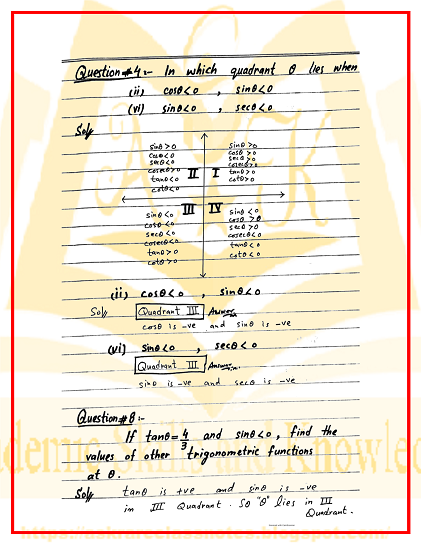 Question#4:- In which quadrant θ lies when
(ii) cosθ<0 , sinθ<0
(vi) sinθ<0 , secθ<0
Sol
sinθ>0
cosθ<0
secθ<0
cosecθ>0
tanθ<0
cotθ<0
II
I
sinθ>0
cosθ>0
secθ>0
cosecθ>0
tanθ>0
cotθ>0
III
sinθ<0
cosθ<0
secθ<0
cosecθ<0
tanθ>0
cotθ>0
IV
sinθ<0
cosθ>0
secθ>0
cosecθ<0
tanθ<0
cotθ<0
(ii) cosθ<0 , sinθ<0
Sol Quadrant III Answer
cosθ is -ve and sinθ is -ve
(vi) sinθ<0 , secθ<0
Quadrant III Answer
sinθ is -ve and secθ is -ve
Question#8:-
If tanθ=4/3 and sinθ<0, find the
values of other trigonometric functions
at θ.
Sol tanθ is +ve and sinθ is -ve
in III Quadrant. So "θ" lies in III
Quadrant.